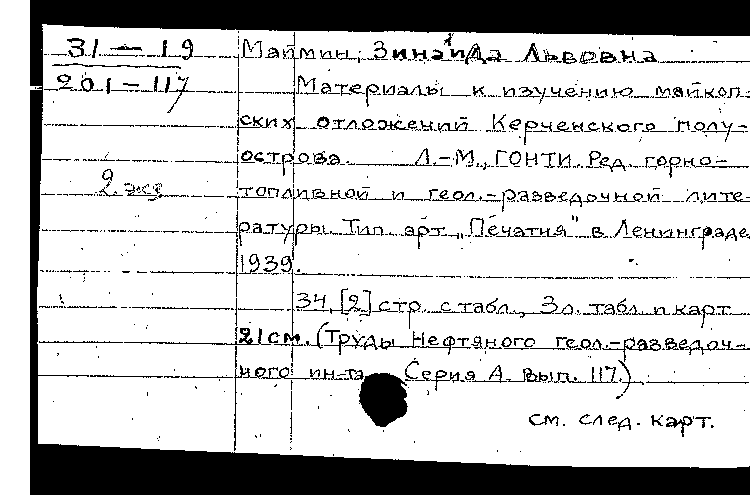 31 — 19
201 – 117
2 экз
Маймин, Зинаида Львовна
Материалы к изучению майкоп-
ских отложений Керченского полу-
острова. Л.-М., ГОНТИ. Ред. горно-
топливной и геол.-разведочной лите-
ратуры. Тип. арт. „Печатня" в Ленинграде
1939.
34, [2] стр. с табл., 3 л. табл. и карт
21 см. (Труды Нефтяного геол.-разведоч-
ного ин-та. Серия А. Вып. 117.)
см. след. карт.